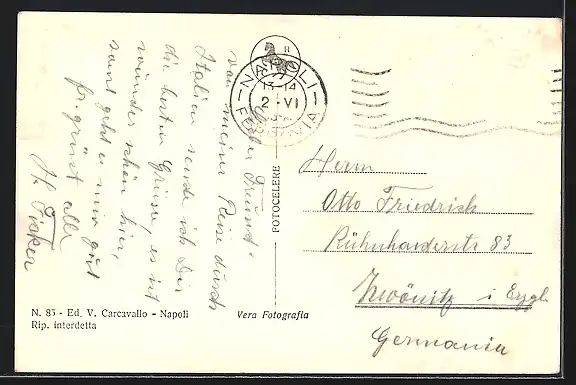 Lieber Freund!
von meiner Reise durch
Italien sende ich Dir
die besten Grüsse, es ist
wunderschön hier,
sonst geht es mir gut
grüsst alle
H.
R
NAPOLI
13-14
2 - VI
FERROVIA
FOTOCELERE
Herrn
Otto Friedrich
Kühnhaiderstr 83
Zwönitz i Erzgb.
Germania
N. 85 - Ed. V. Carcavallo - Napoli
Rip. interdetta
Vera Fotografia